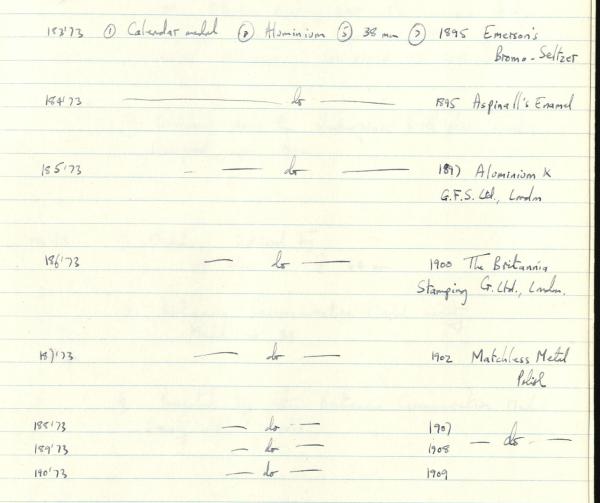 183'73 ① Calendar medal ② Aluminium ⑤ 38 mm ⑦ 1895 Emerson's
Bromo-Seltzer
184'73 — do — 1895 Aspinall's Enamel
185'73 — do — 1897 Aluminium &
G.F.S. Ltd., London
186'73 — do — 1900 The Britannia
Stamping Co. Ltd., London.
187'73 — do — 1902 Matchless Metal
Polish
188'73 — do — 1907
189'73 — do — 1908 — do —
190'73 — do — 1909